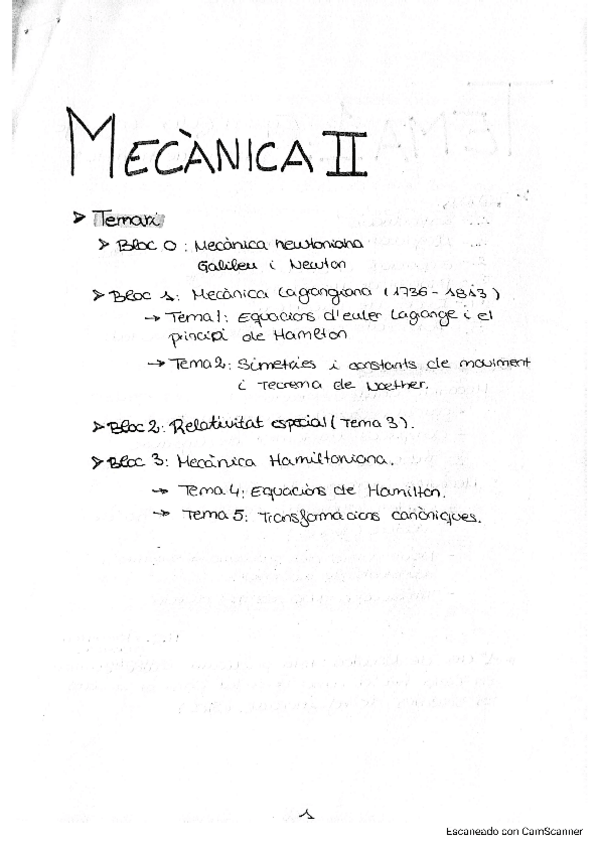 MECÀNICA II
➤ Temari
➤ Bloc 0 : Mecànica newtoniana
Galileu i Newton
➤ Bloc 1: Mecànica Lagrangiana (1736 - 1813)
→ Tema 1: Equacions d'euler Lagrange i el
principi de Hamilton
→ Tema 2: Simetries i constants de moviment
i Teorema de Noether.
➤ Bloc 2: Relativitat especial (Tema 3).
➤ Bloc 3: Mecànica Hamiltoniana.
→ Tema 4: Equacions de Hamilton.
→ Tema 5: Transformacions canòniques.
1
Escaneado con CamScanner